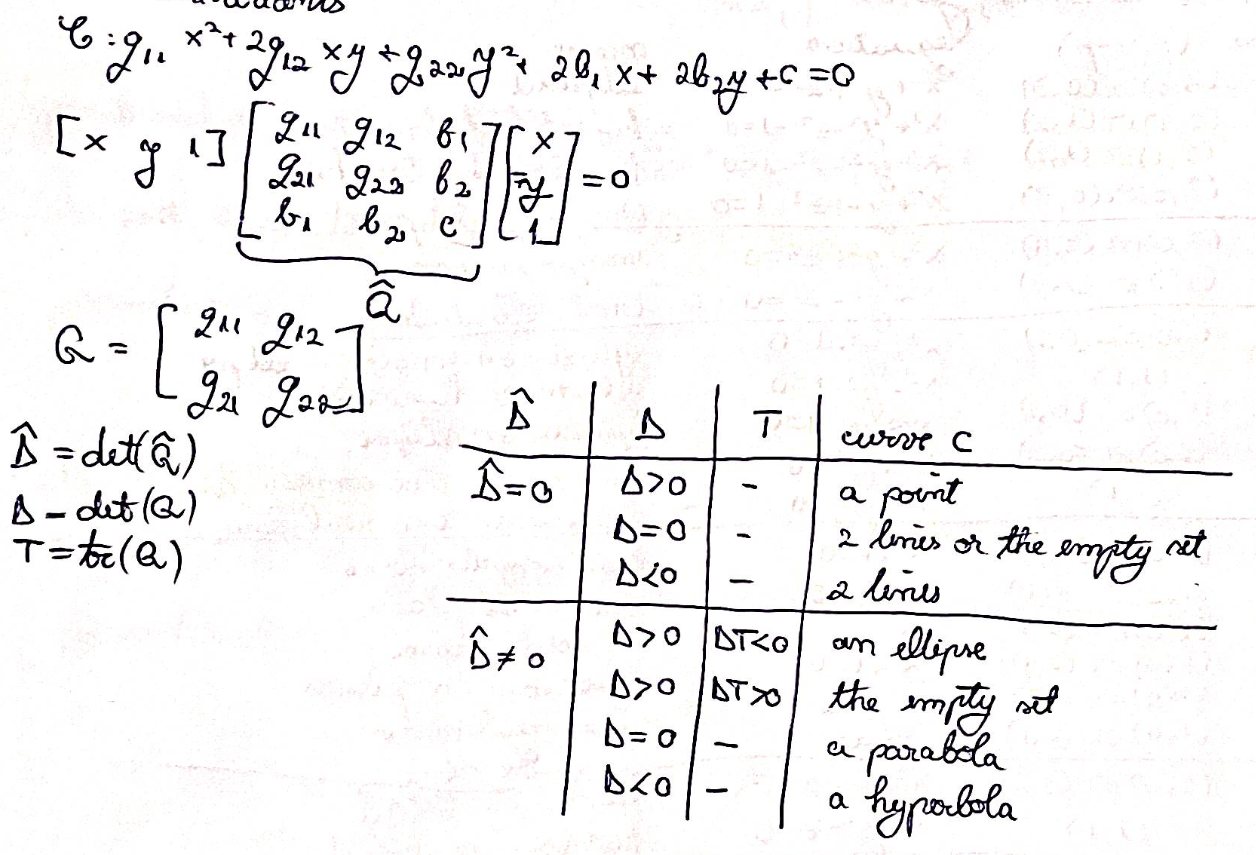 C: g₁₁ x² + 2g₁₂ xy + g₂₂ y² + 2b₁ x + 2b₂ y + c = 0
[x y 1] [g₁₁ g₁₂ b₁; g₂₁ g₂₂ b₂; b₁ b₂ c] [x; y; 1] = 0
Q̂
Q = [g₁₁ g₁₂; g₂₁ g₂₂]
Δ̂ = det(Q̂)
Δ – det(Q)
T = tr(Q)
Δ̂ | Δ | T | curve C
Δ̂=0 | Δ>0 | – | a point
Δ=0 | – | 2 lines or the empty set
Δ<0 | – | 2 lines
Δ̂≠0 | Δ>0 | ΔT<0 | an ellipse
Δ>0 | ΔT>0 | the empty set
Δ=0 | – | a parabola
Δ<0 | – | a hyperbola